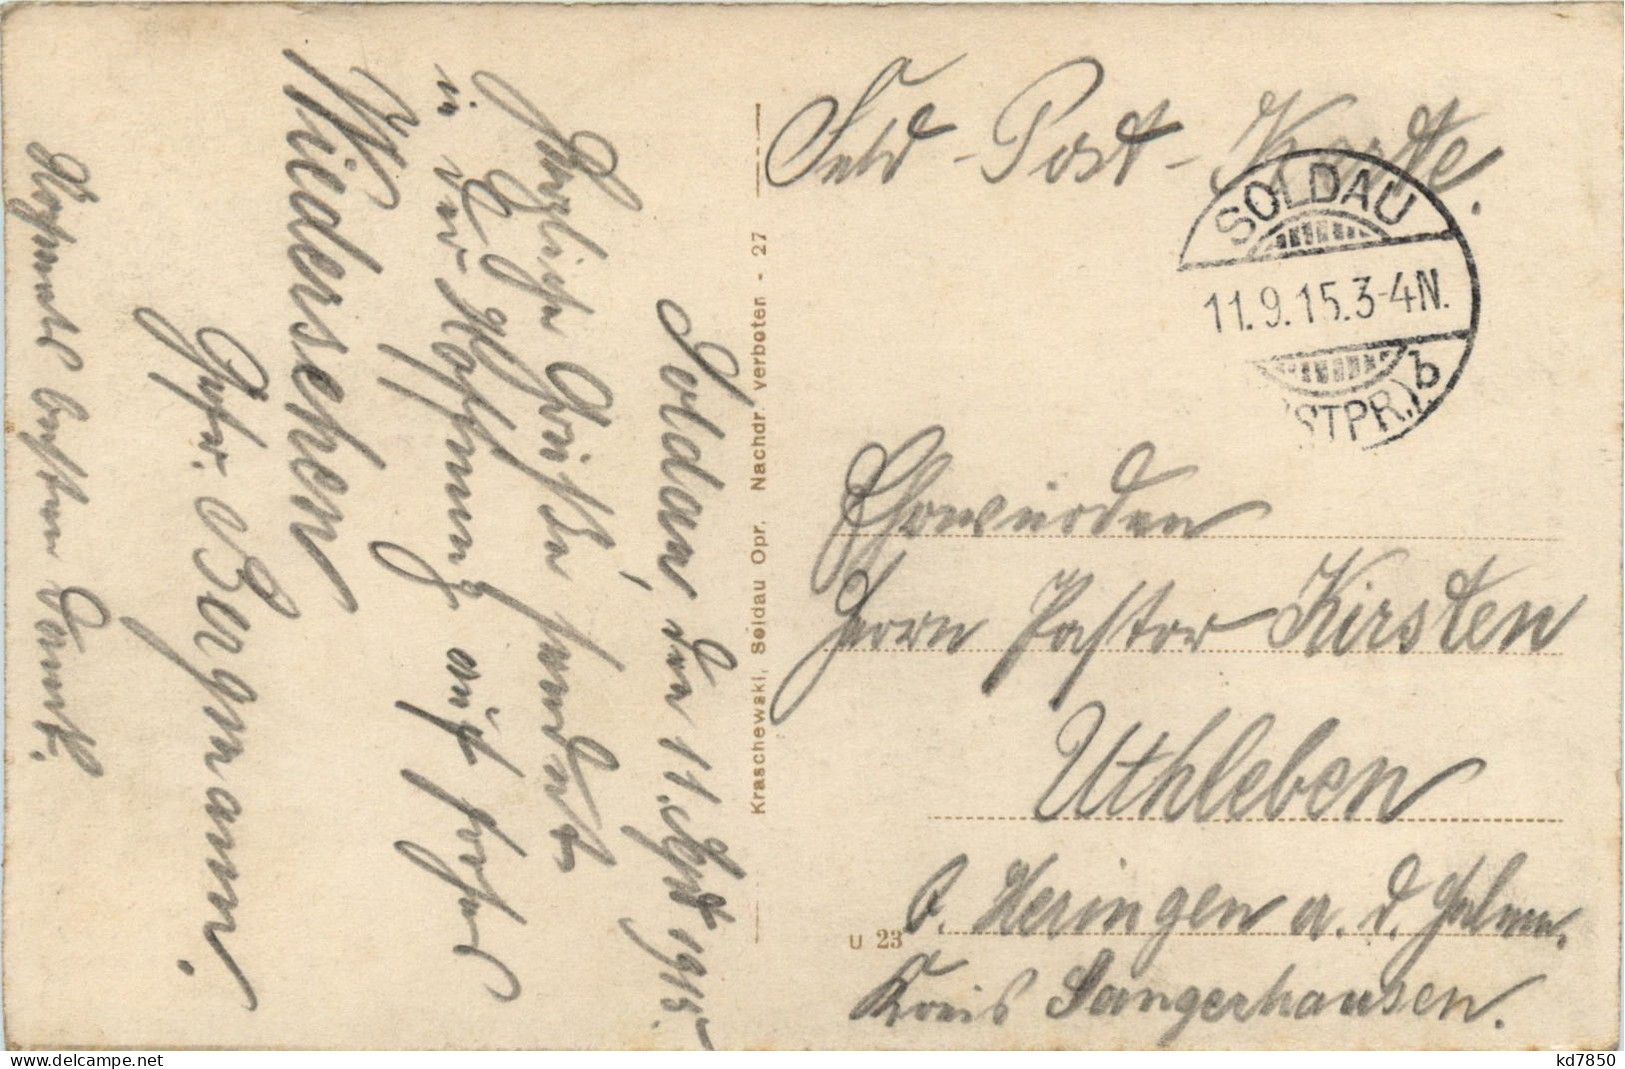 Feld-Post-Karte.
SOLDAU
11.9.15.3-4N.
(OSTPR.) b
Ehrwürden
Herrn Pastor Kirsten
Uthleben
b. Heringen a. d. Helme.
Kreis Sangerhausen.
U 23
Kraschewski, Soldau Opr. Nachdr. verboten - 27
Soldau, den 11. Sept 1915.
Herzliche Grüße sendet
in der Hoffnung auf frohes
Wiedersehen
Gefr. Bergmann.
besten Dank.
kd7850